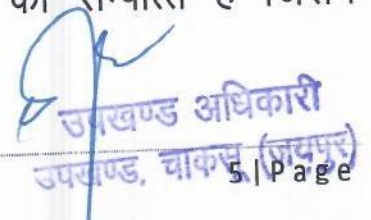 उपखण्ड अधिकारी
उपखण्ड, चाकसू (जयपुर)
5 | P a g e